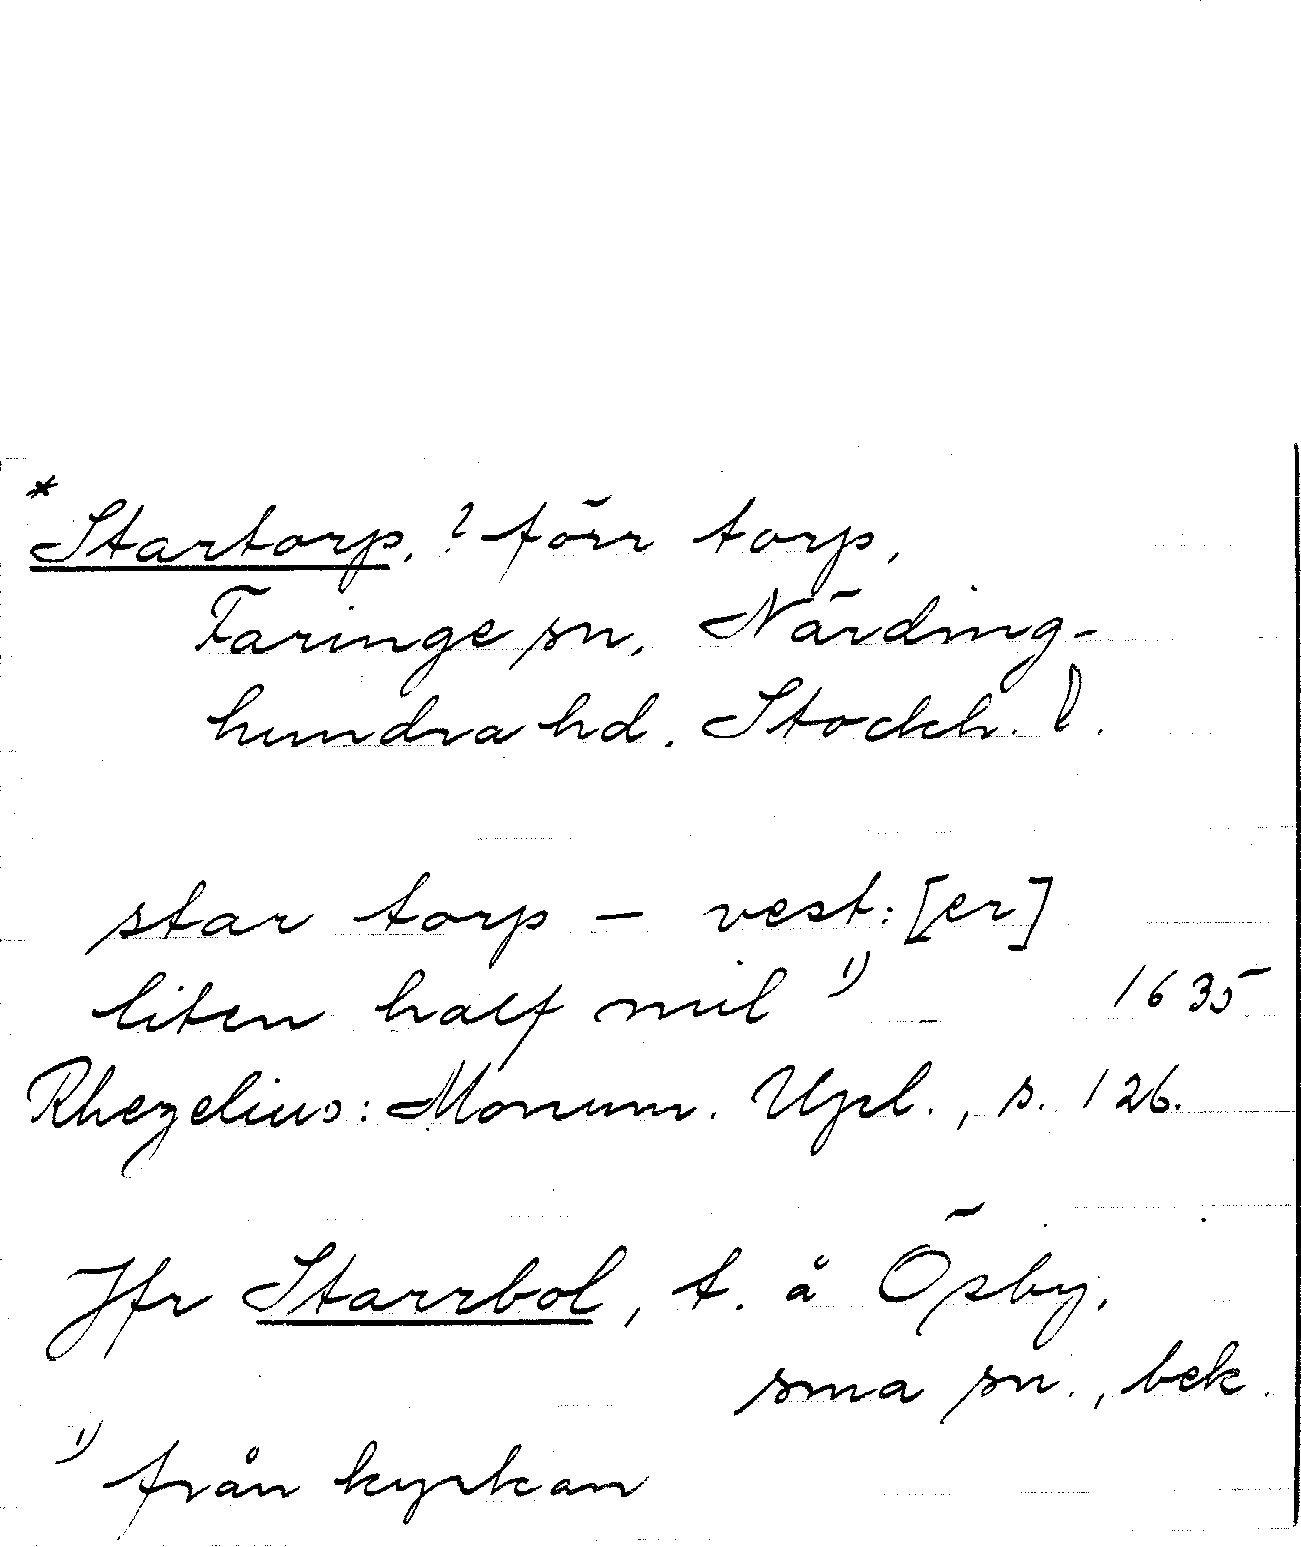 *Startorp, ? förr torp,
Faringe sn, Närding-
hundra hd. Stockh. l.
star torp – vest:[er]
liten half mil ¹⁾ 1635
Rhezelius: Monum. Upl., s. 126.
Jfr Starrbol, t. å Ösby,
sma sn., bek.
¹⁾ från kyrkan